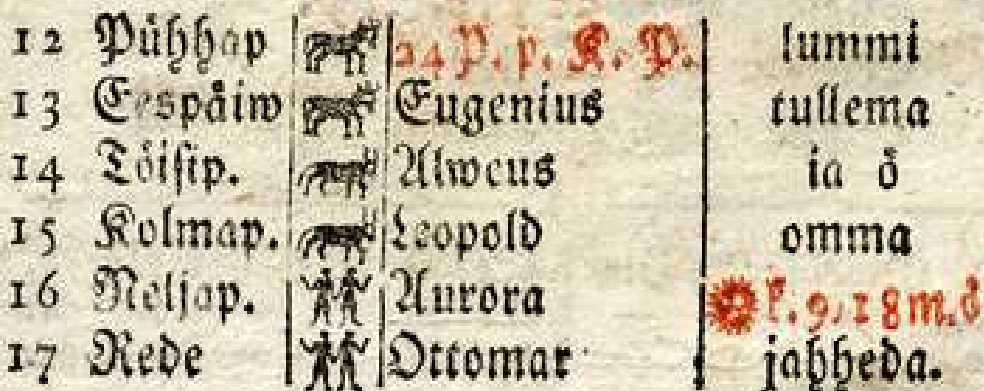 12 Pühhap 24 P. p. K. P. lummi
13 Eespäiw Eugenius tullema
14 Töisip. Alweus ia ö
15 Kolmap. Leopold omma
16 Neljap. Aurora k. 9, 18 m. ö
17 Rede Ottomar jahheda.